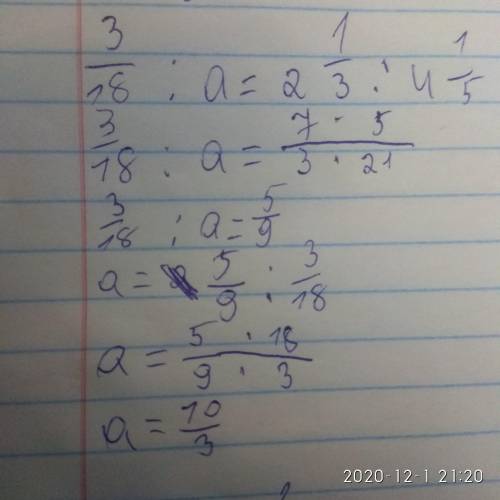 3/18 : a = 2 1/3 : 4 1/5
3/18 : a = 7 · 5 / 3 · 21
3/18 : a = 5/9
a = 5/9 : 3/18
a = 5 · 18 / 9 · 3
a = 10/3
2020-12-1 21:20